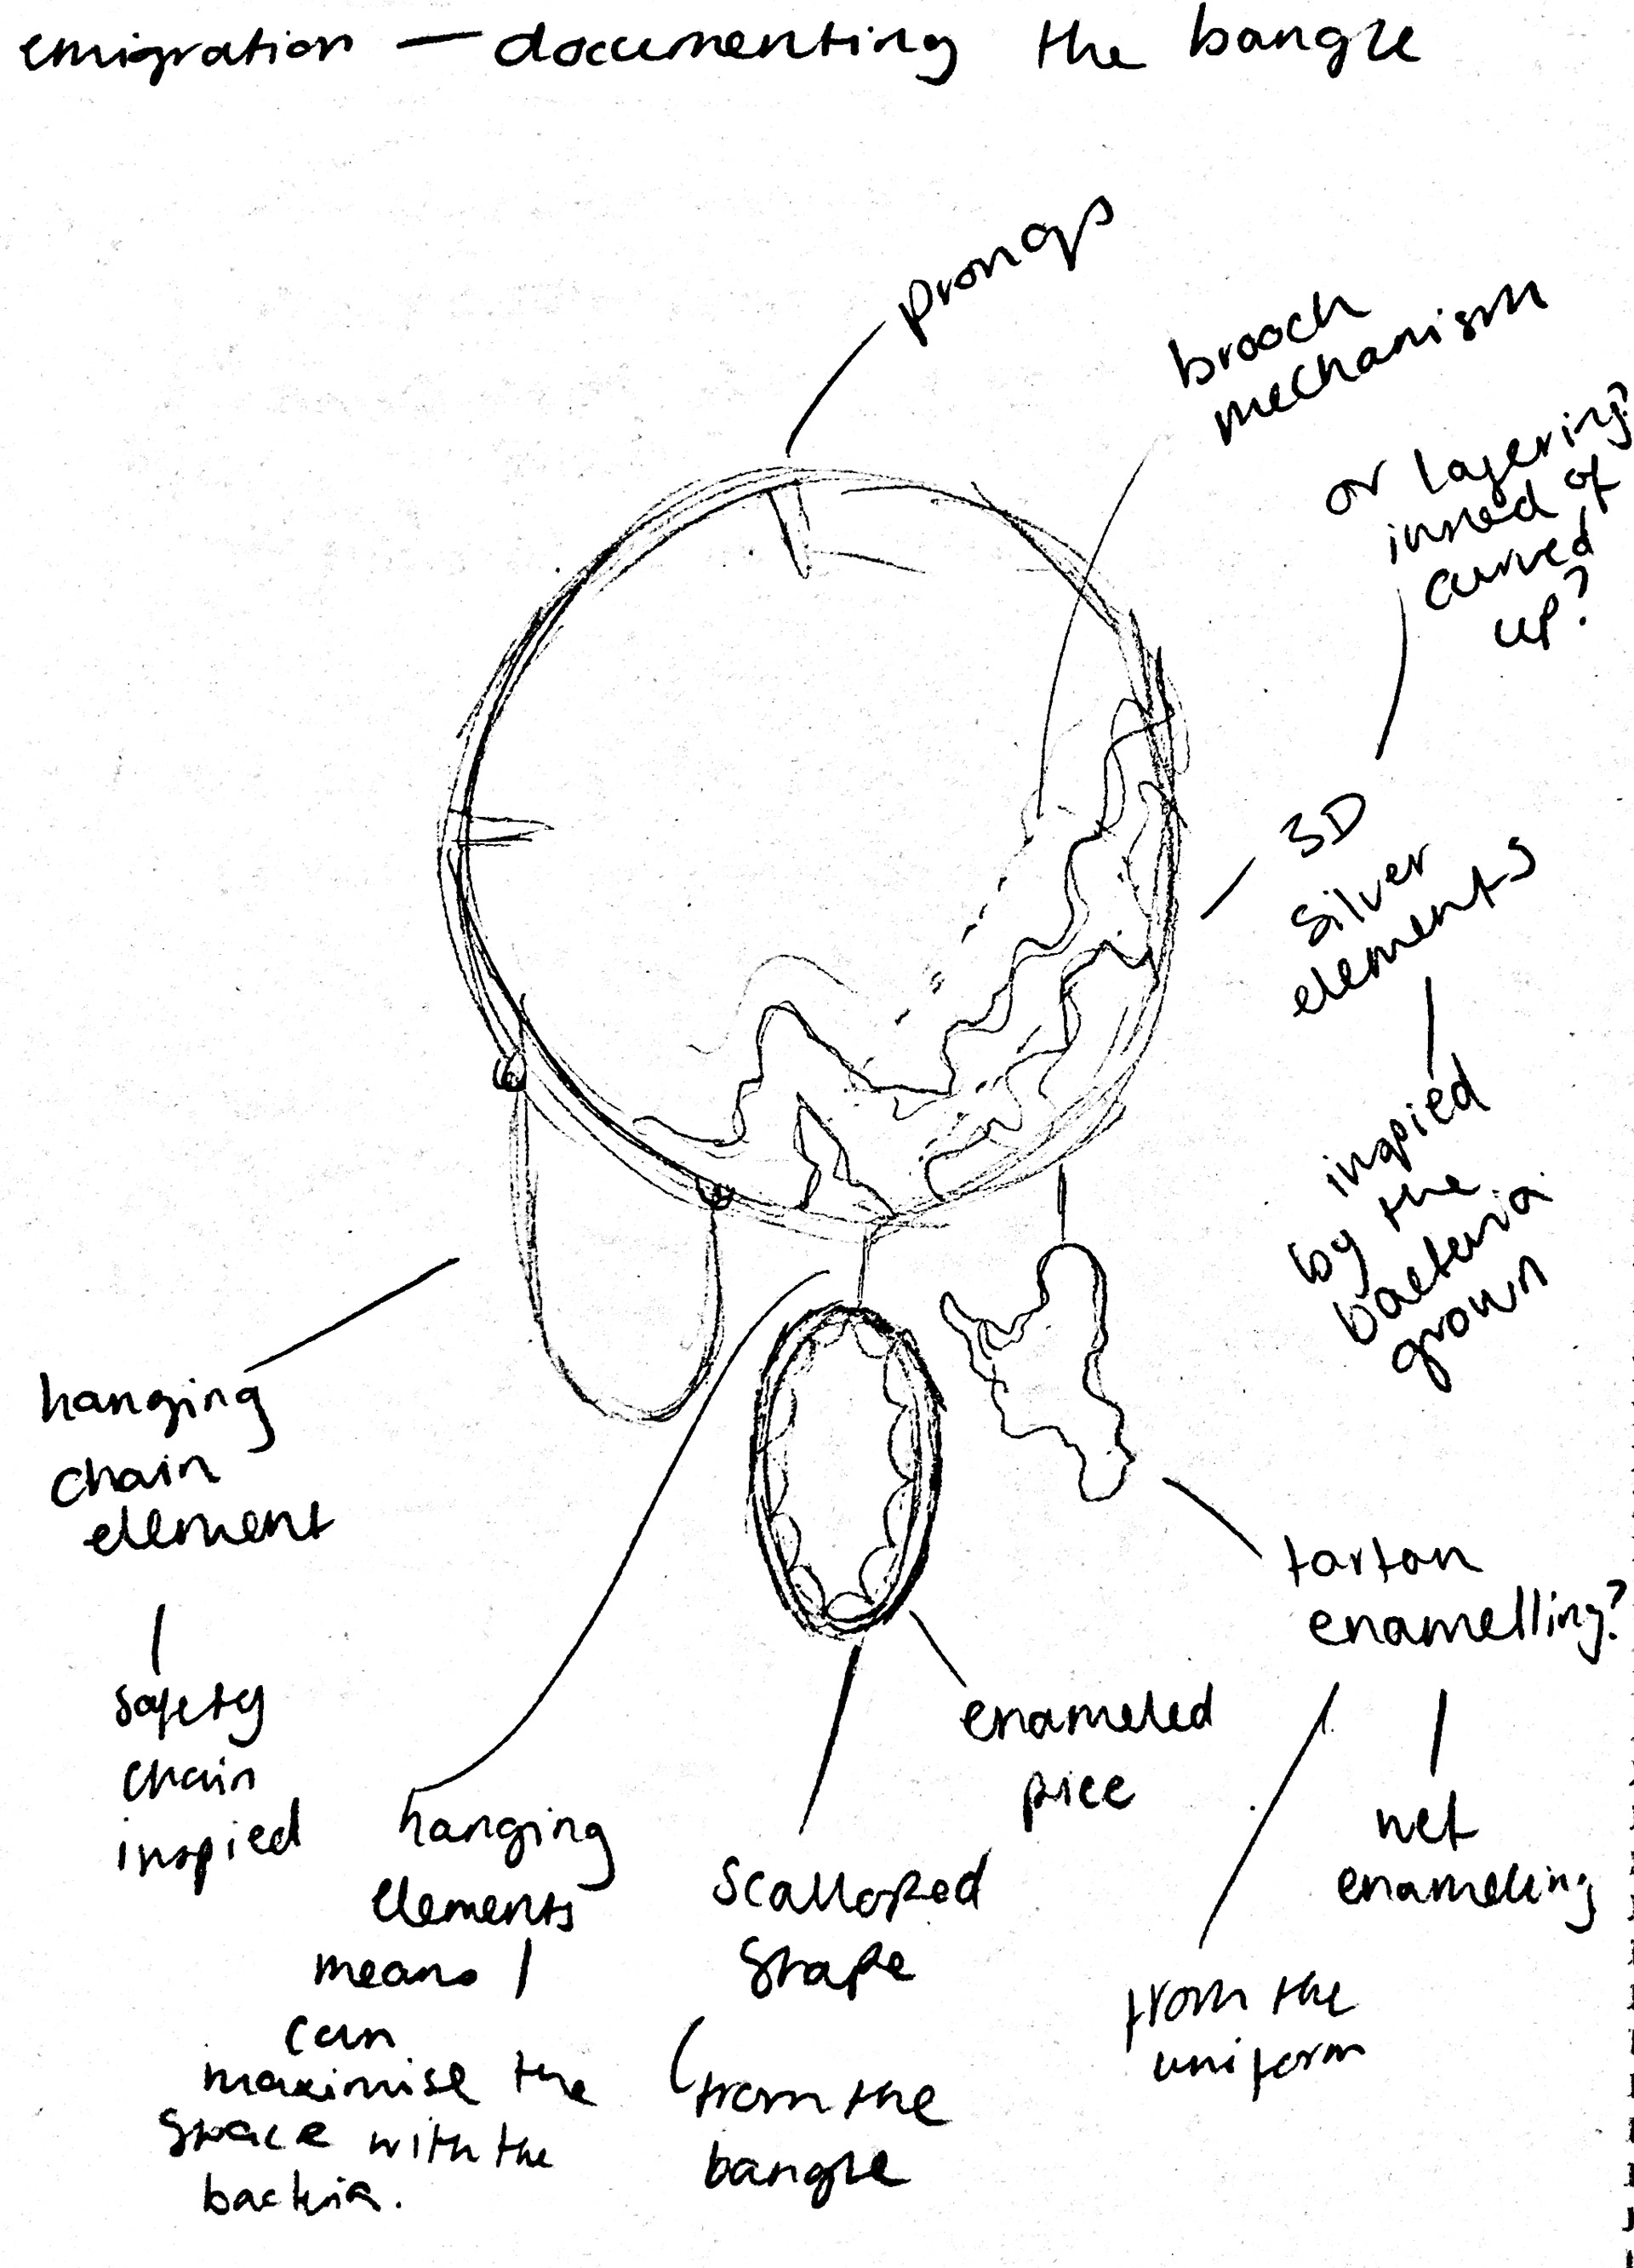 emigration — documenting the bangle
prongs
brooch
mechanism
or layering?
insed of
curved
up?
3D
silver
elements
inspied
by the
bacteria
grown
hanging
chain
element
safety
chain
inspied
hanging
elements
means I
can
maximise the
space with the
bacteria.
scalloped
shape
(from the
bangle
enameled
piece
tartan
enamelling?
wet
enameling
from the
uniform